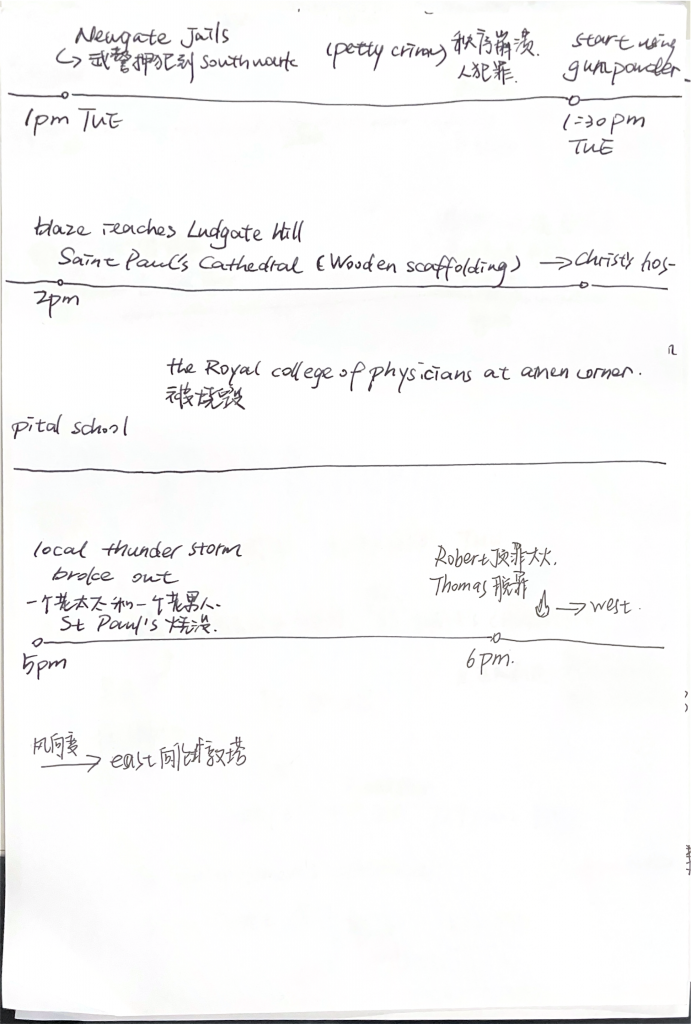 Newgate Jails
↳ 武警押犯到 Southwark
(petty crime) 秩序崩溃.
人犯罪.
start using
gunpowder.
1pm TUE
1:30pm
TUE
blaze reaches Ludgate Hill
Saint Paul's Cathedral (Wooden scaffolding) → Christ's hos-
2pm
the Royal college of physicians at amen corner.
被烧毁
pital school
local thunder storm
broke out
一个老太太和一个老男人.
St Paul's 烧没.
Robert顶罪大火.
Thomas 脱罪
→ west.
5pm
6pm.
风向变
→ east 向伦敦塔